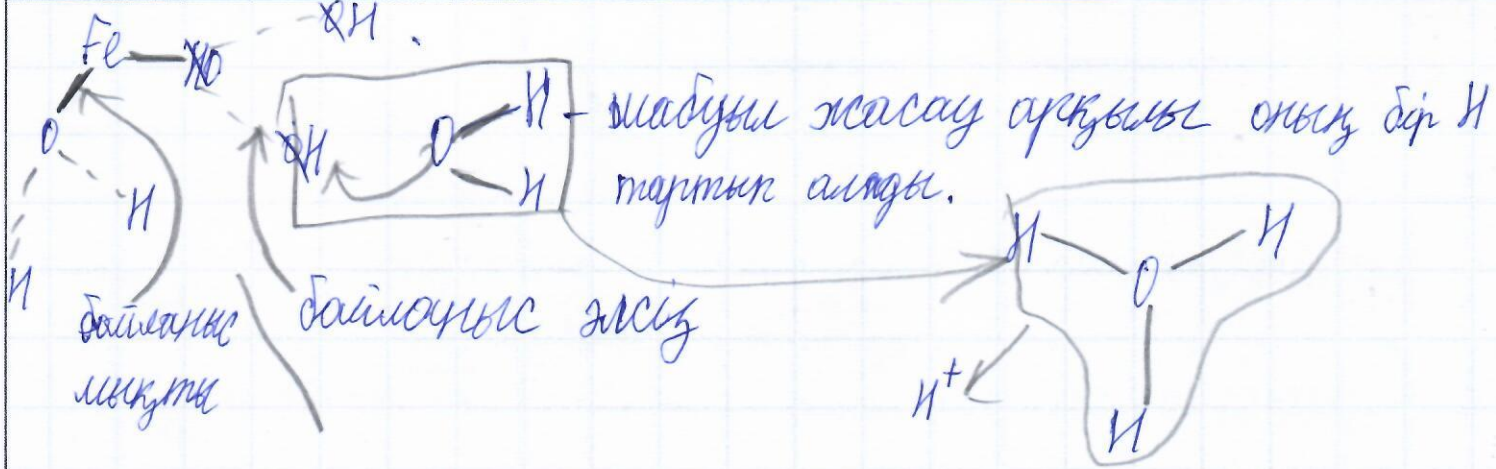 H
Fe — O
O
H
H
H
O
H
H
- шабуыл жасау арқылы оның бір H
тартып алады.
байланыс
мықты
байланыс әлсіз
H
H
O
H
H⁺